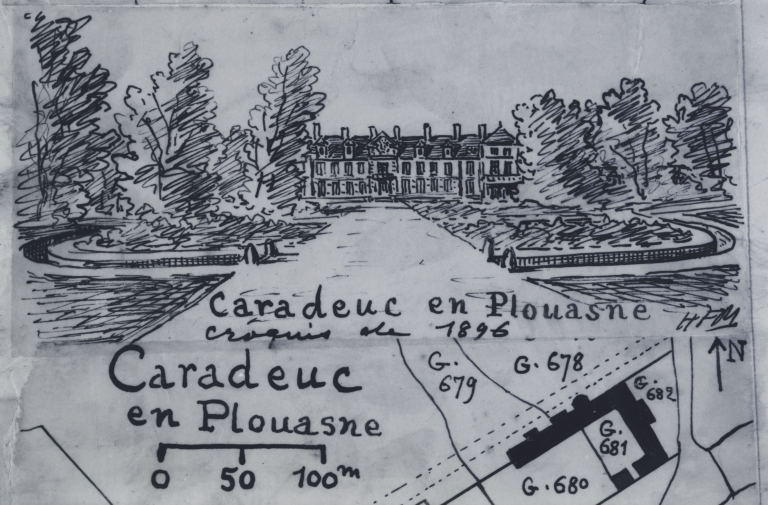 Caradeuc en Plouasne
croquis de 1896
HFM
Caradeuc
en Plouasne
0 50 100m
G. 679
G. 678
G. 682
G. 681
G. 680
N